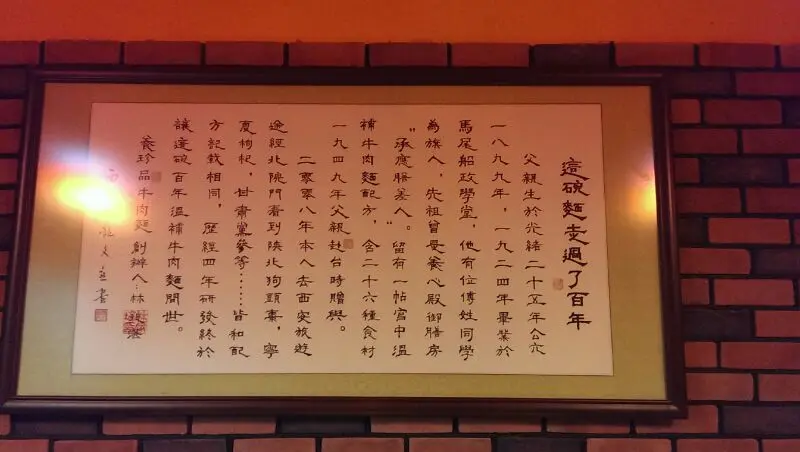 這碗麵走過了百年
父親生於光緒二十五年公元
一八九九年，一九二四年畢業於
馬尾船政學堂，他有位傅姓同學
為旗人，先祖曾受養心殿御膳房
"承應膳差人"。留有一帖宮中溫
補牛肉麵配方，含二十六種食材
一九四九年父親赴台時贈與。
二零零八年本人去西安旅遊
途經北院門看到陝北狗頭棗，寧
夏枸杞，甘肅黨參等……皆和配
方記載相同，歷經四年研發終於
讓這碗百年溫補牛肉麵問世。
養珍品牛肉麵創辦人：林
書